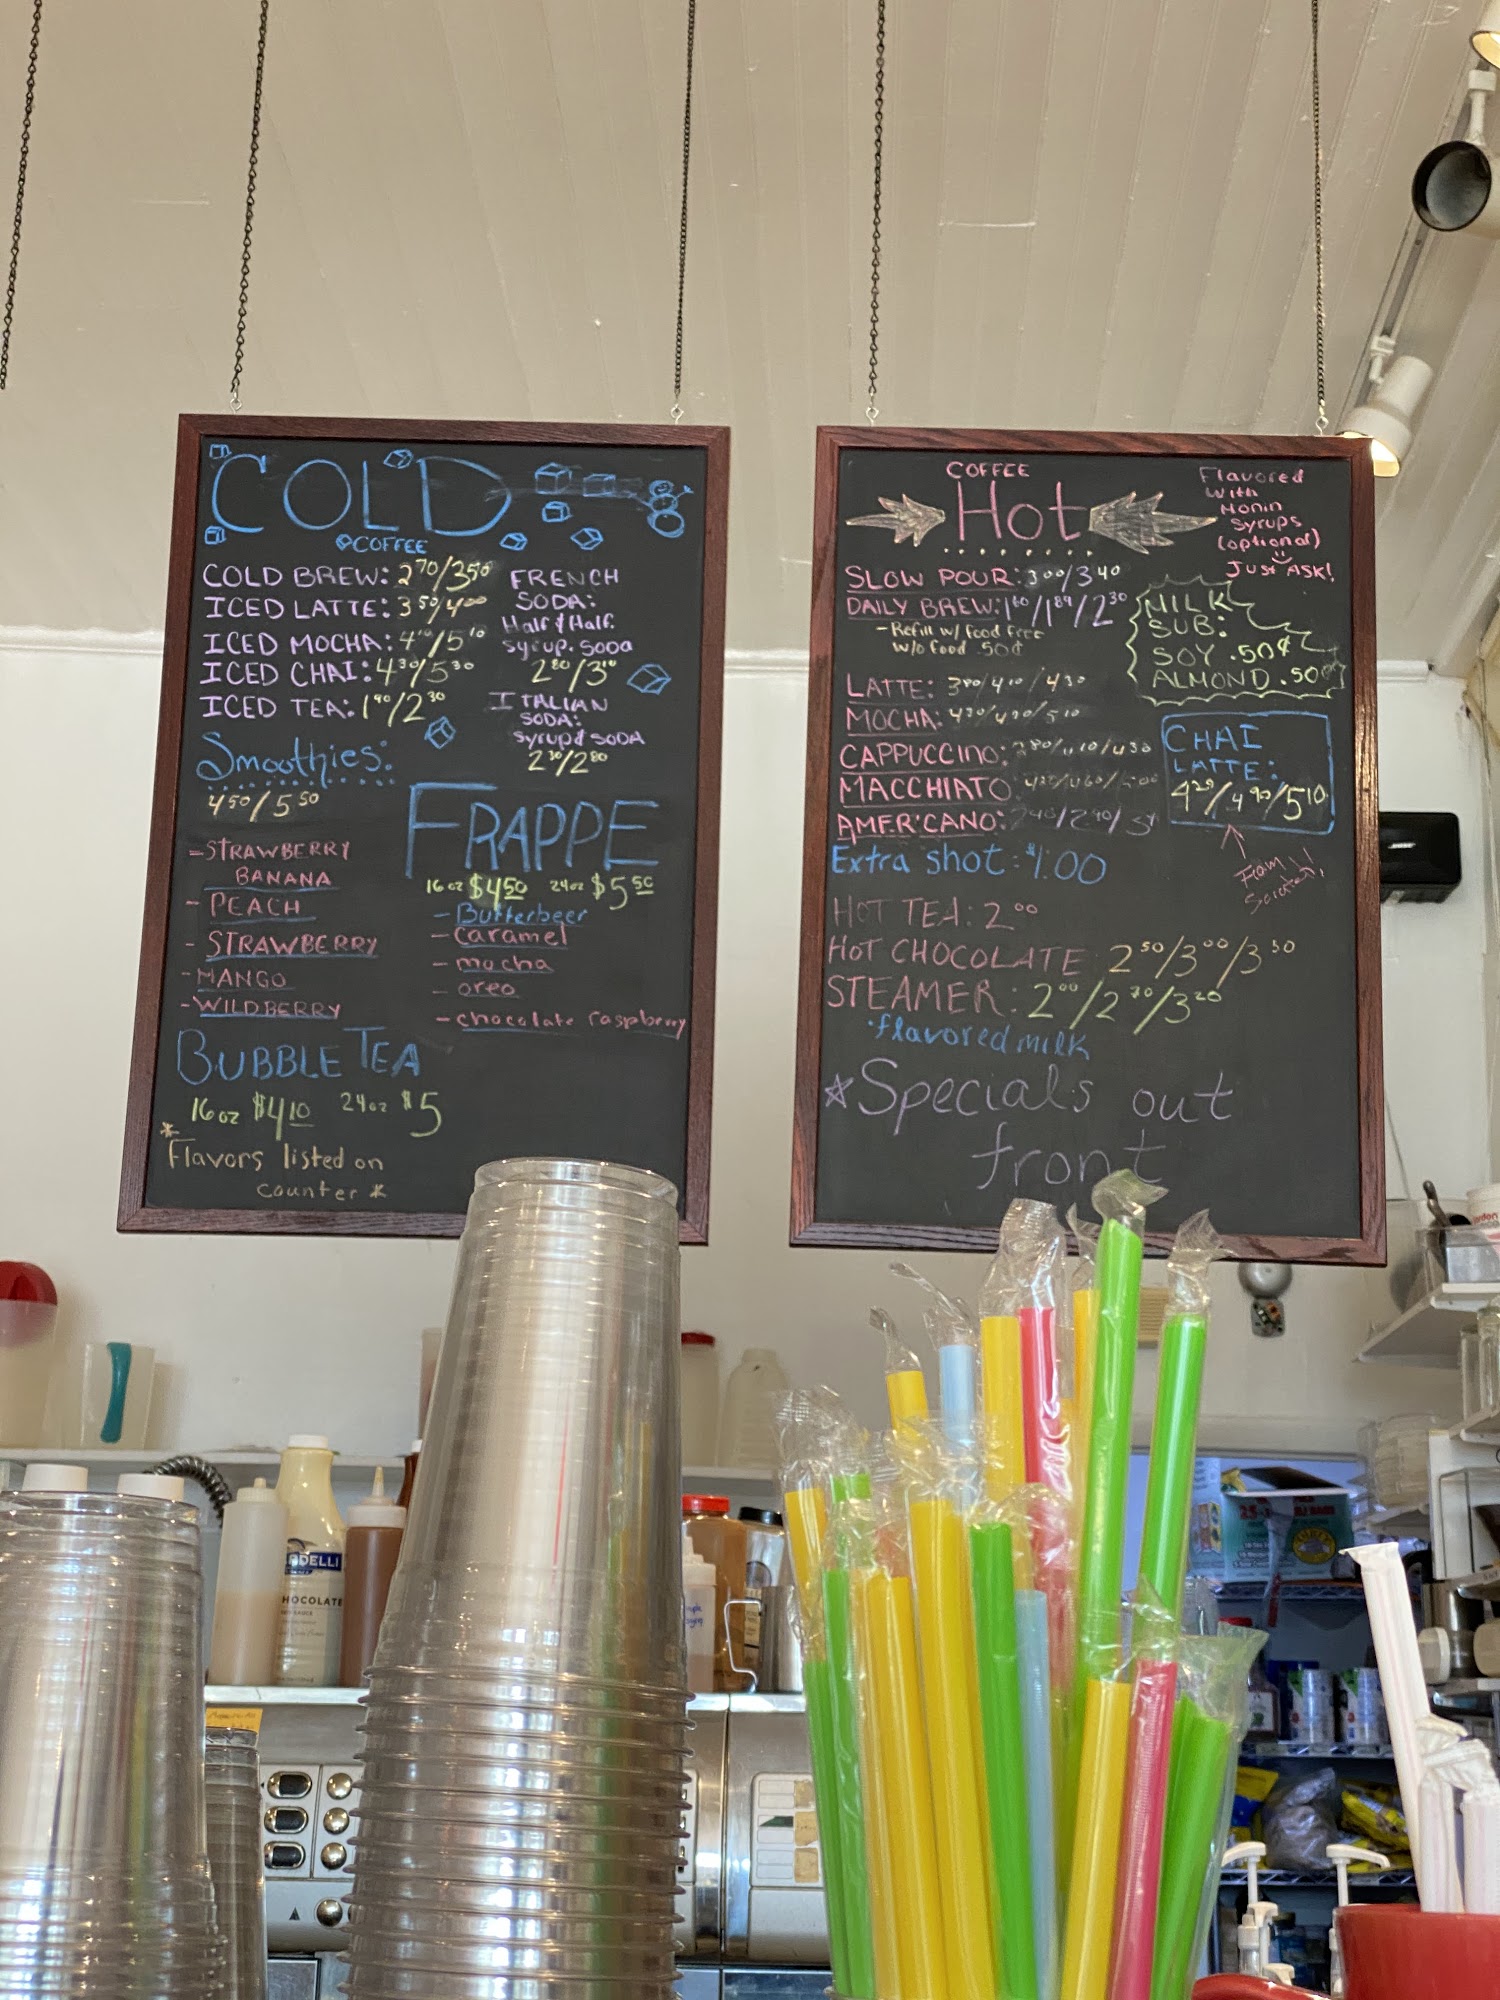 COLD
COFFEE
COLD BREW: 2 70/3 50
ICED LATTE: 3 50/4 00
ICED MOCHA: 4 10/5 10
ICED CHAI: 4 30/5 30
ICED TEA: 1 90/2 30
FRENCH
SODA:
Half & Half.
syrup. Soda
2 80/3 10
ITALIAN
SODA:
syrup & SODA
2 30/2 80
Smoothies:
4 50/5 50
- STRAWBERRY
BANANA
- PEACH
- STRAWBERRY
- MANGO
- WILDBERRY
FRAPPE
16 oz $4 50 24 oz $5 50
- Butterbeer
- Caramel
- mocha
- oreo
- chocolate raspberry
BUBBLE TEA
16 oz $4 10 24 oz $5
*
Flavors listed on
counter *
COFFEE
Hot
Flavored
With
Monin
Syrups
(optional)
Just ASK!
SLOW POUR: 3 00/3 40
DAILY BREW: 1 60/1 89/2 30
- Refill w/ food free
w/o food .50¢
MILK
SUB:
SOY .50¢
ALMOND .50¢
LATTE: 3 80/4 10/4 30
MOCHA: 4 30/4 90/5 10
CAPPUCCINO:
MACCHIATO
AMERICANO:
CHAI
LATTE:
4 20/4 90/5 10
From
Scratch!!
Extra shot: $1.00
HOT TEA: 2 00
HOT CHOCOLATE 2 50/3 00/3 50
STEAMER: 2 00/2 70/3 20
• flavored milk
☆ Specials out
front
DELLI
HOCOLATE
BOSE